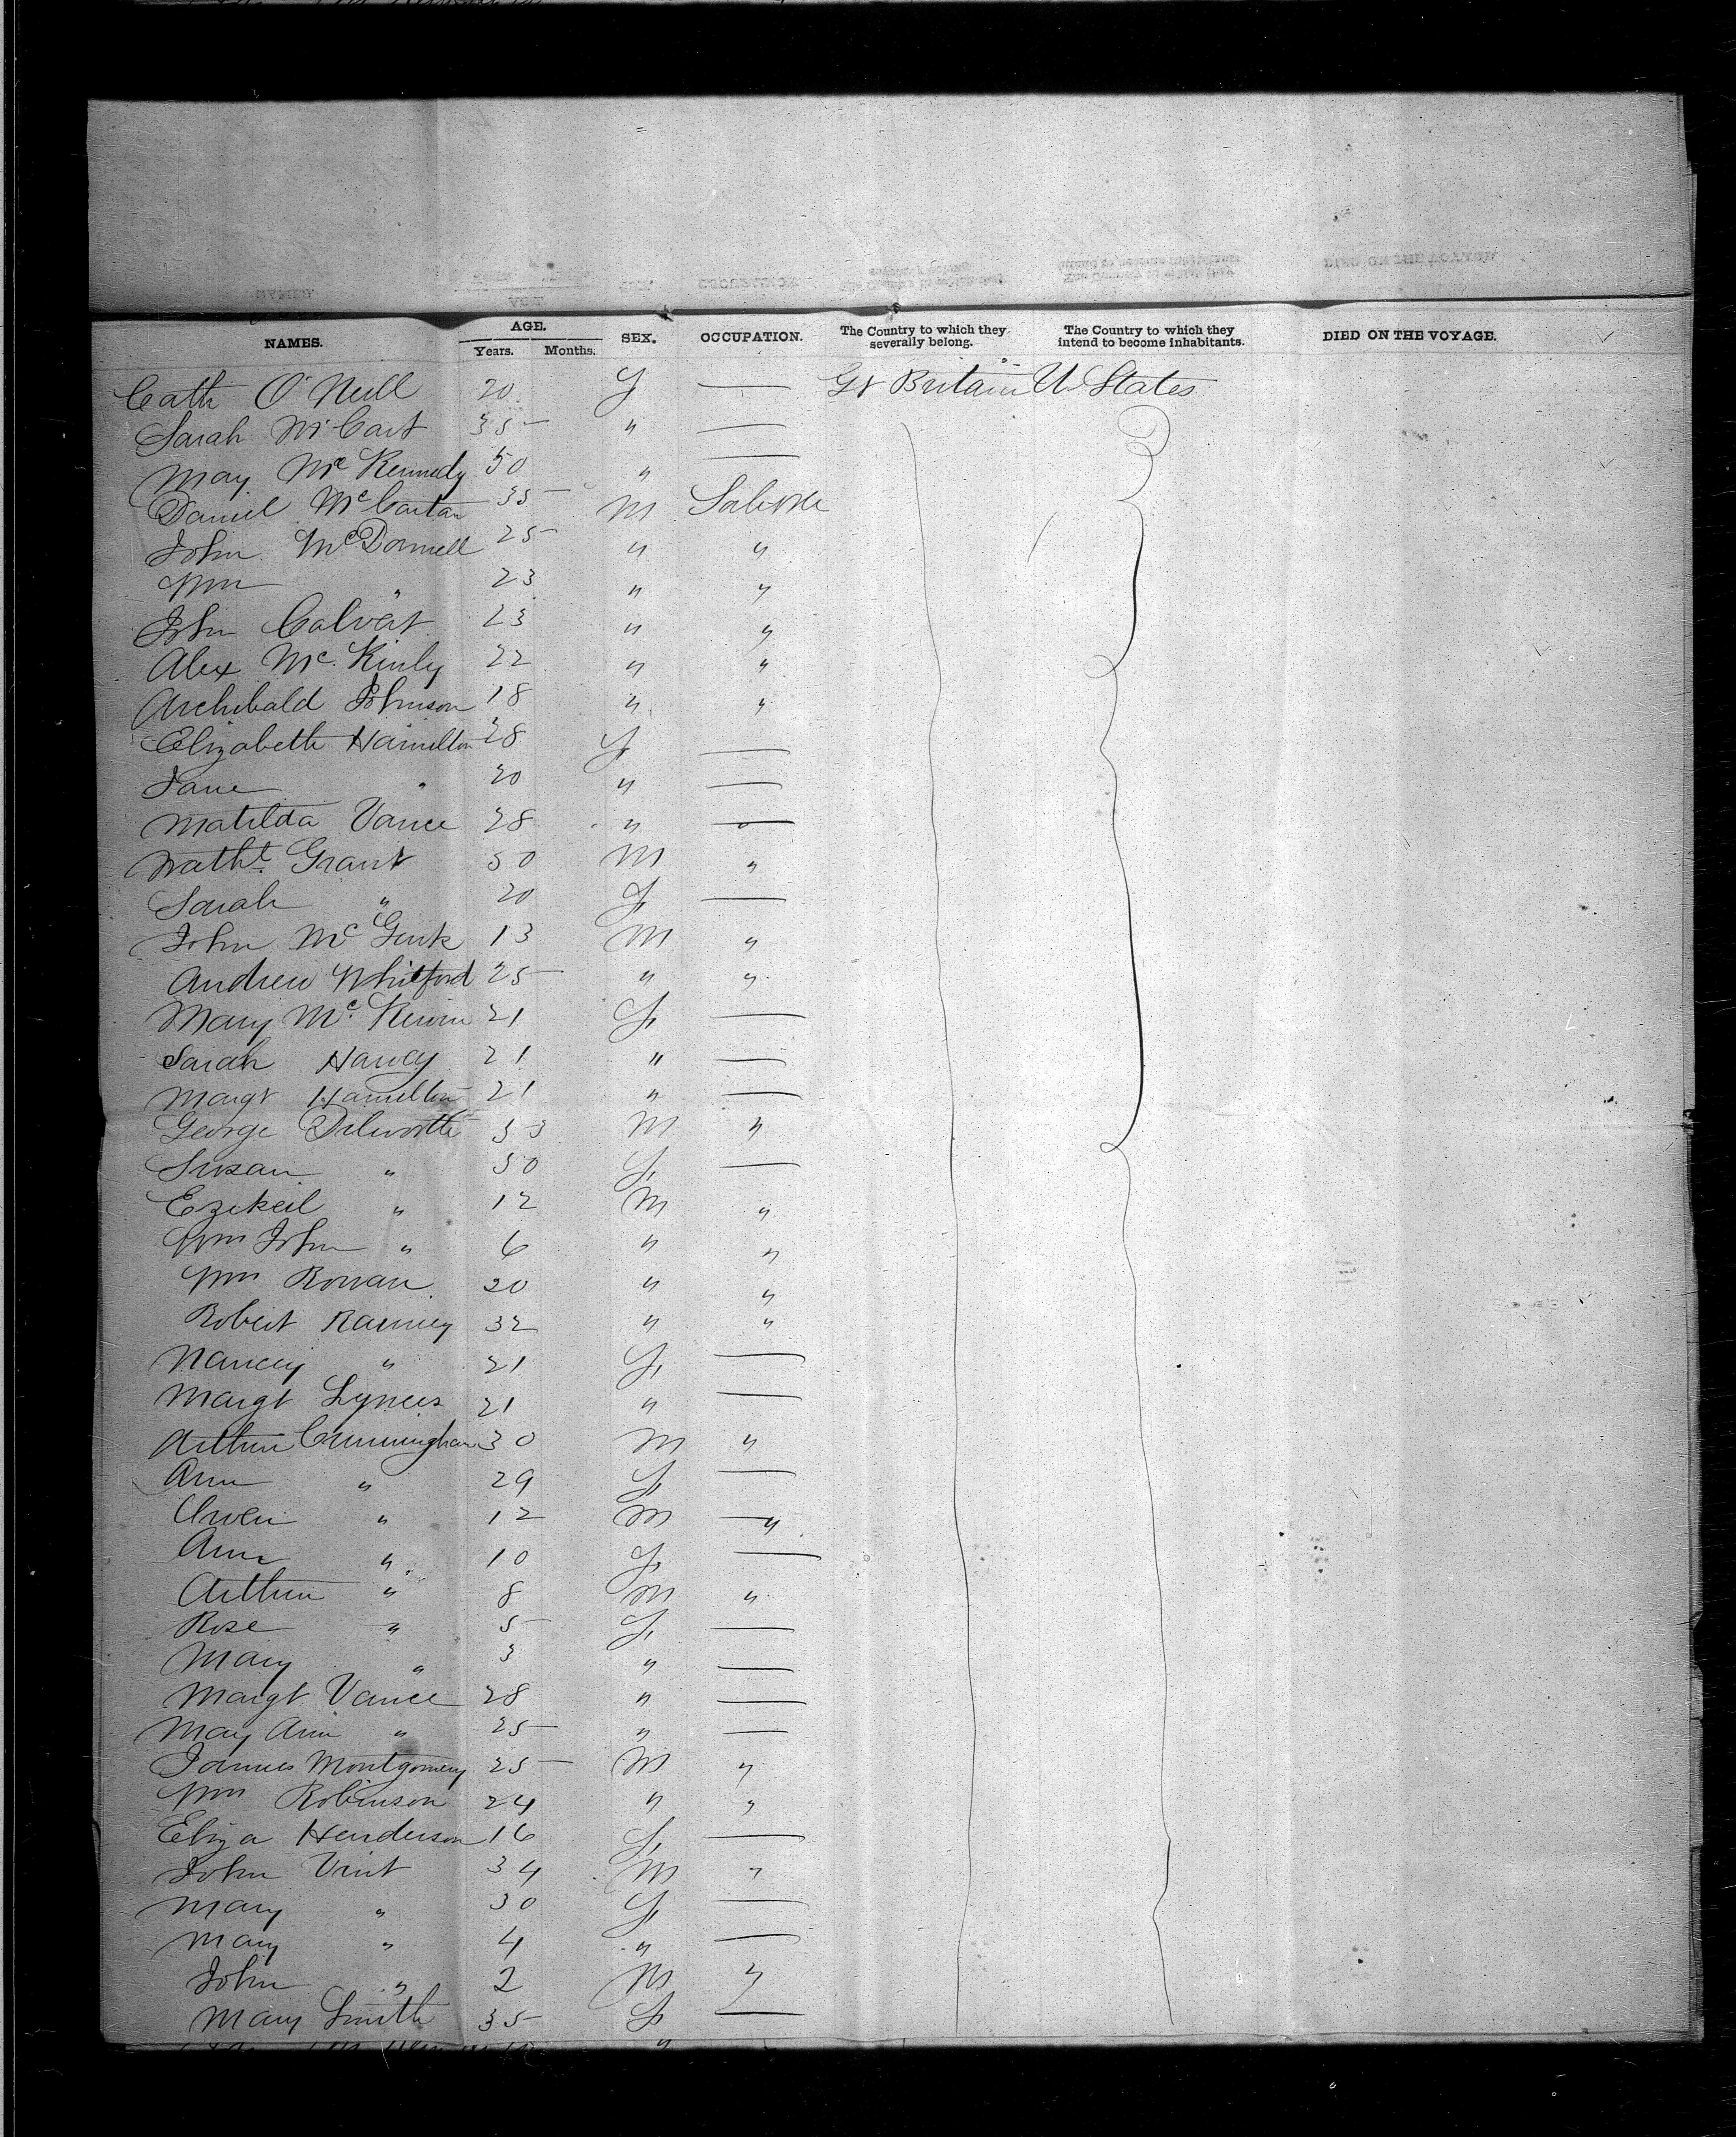 NAMES. AGE. Years. Months. SEX. OCCUPATION. The Country to which they severally belong. The Country to which they intend to become inhabitants. DIED ON THE VOYAGE.
Cath O'Neill 20 F — Gt Britain U. States
Sarah McCart 35 " —
May McKennedy 50 " —
Daniel McCartan 35 M Laborer
John McDonnell 25 " "
Wm " 23 " "
John Calvert 23 " "
Alex McKinly 22 " "
Archibald Johnson 18 " "
Elizabeth Hamilton 28 F —
Jane " 20 " —
Matilda Vance 28 " —
Grant 50 M "
Sarah " 20 F —
John McGurk 13 M "
Andrew Whitford 25 " "
Mary Mc 21 F —
Sarah Harvey 21 " —
Margt Hamilton 21 " —
George Dilworth 53 M "
Susan " 50 F —
Ezekeil " 12 M "
Wm John " 6 " "
Wm Rowan 20 " "
Robert Ranney 32 " "
Nancy " 21 F —
Margt 21 " —
Arthur Cunningham 30 M "
Ann " 29 F —
Owen " 12 M "
Ann " 10 F —
Arthur " 8 M "
Rose " 5 F —
Mary " 3 " —
Margt Vance 28 " —
May Ann " 25 " —
James Montgomery 25 M "
Wm Robinson 24 " "
Eliza Henderson 16 F —
John Vint 34 M "
Mary " 30 F —
Mary " 4 " —
John " 2 M "
Mary Smith 35 F —